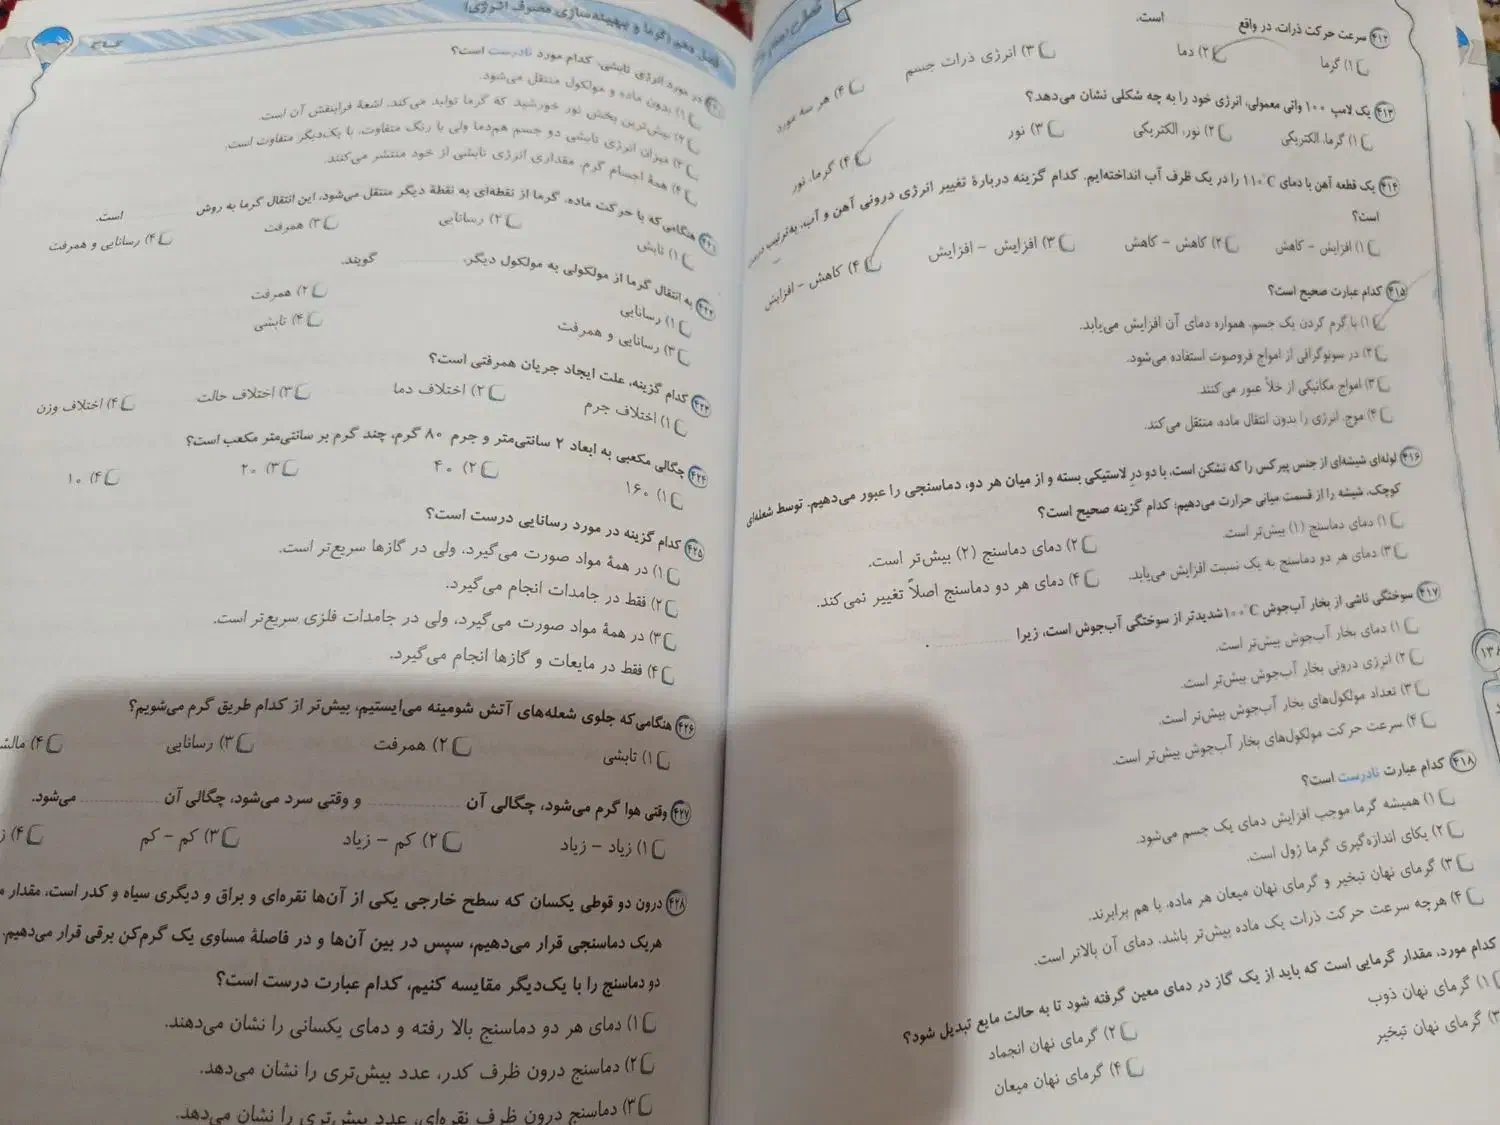 ۴۱۲ سرعت حرکت ذرات، در واقع ............ است.
۱) گرما ۲) دما ۳) انرژی ذرات جسم ۴) هر سه مورد
۴۱۳ یک لامپ ۱۰۰ واتی معمولی، انرژی خود را به چه شکلی نشان می‌دهد؟
۱) گرما، الکتریکی ۲) نور، الکتریکی ۳) نور ۴) گرما، نور
۴۱۴ یک قطعه آهن با دمای ۱۱۰°C را در یک ظرف آب انداخته‌ایم. کدام گزینه دربارهٔ تغییر انرژی درونی آهن و آب، به‌ترتیب درست
است؟
۱) افزایش – کاهش ۲) کاهش – کاهش ۳) افزایش – افزایش ۴) کاهش – افزایش
۴۱۵ کدام عبارت صحیح است؟
۱) با گرم کردن یک جسم، همواره دمای آن افزایش می‌یابد.
۲) در سونوگرافی از امواج فروصوت استفاده می‌شود.
۳) امواج مکانیکی از خلأ عبور می‌کنند.
۴) موج، انرژی را بدون انتقال ماده، منتقل می‌کند.
۴۱۶ لوله‌ای شیشه‌ای از جنس پیرکس را که نشکن است، با دو درِ لاستیکی بسته و از میان هر دو، دماسنجی را عبور می‌دهیم. توسط شعله‌ای
کوچک، شیشه را از قسمت میانی حرارت می‌دهیم؛ کدام گزینه صحیح است؟
۱) دمای دماسنج (۱) بیش‌تر است. ۲) دمای دماسنج (۲) بیش‌تر است.
۳) دمای هر دو دماسنج به یک نسبت افزایش می‌یابد. ۴) دمای هر دو دماسنج اصلاً تغییر نمی‌کند.
۴۱۷ سوختگی ناشی از بخار آب‌جوش ۱۰۰°C شدیدتر از سوختگی آب‌جوش است، زیرا ............ .
۱) دمای بخار آب‌جوش بیش‌تر است.
۲) انرژی درونی بخار آب‌جوش بیش‌تر است.
۳) تعداد مولکول‌های بخار آب‌جوش بیش‌تر است.
۴) سرعت حرکت مولکول‌های بخار آب‌جوش بیش‌تر است.
۴۱۸ کدام عبارت نادرست است؟
۱) همیشه گرما موجب افزایش دمای یک جسم می‌شود.
۲) یکای اندازه‌گیری گرما ژول است.
۳) گرمای نهان تبخیر و گرمای نهان میعان هر ماده، با هم برابرند.
۴) هرچه سرعت حرکت ذرات یک ماده بیش‌تر باشد، دمای آن بالاتر است.
کدام مورد، مقدار گرمایی است که باید از یک گاز در دمای معین گرفته شود تا به حالت مایع تبدیل شود؟
۱) گرمای نهان ذوب ۲) گرمای نهان انجماد
۳) گرمای نهان تبخیر ۴) گرمای نهان میعان
فصل دهم (گرما و بهینه‌سازی مصرف انرژی)
در مورد انرژی تابشی، کدام مورد نادرست است؟
۱) بدون ماده و مولکول منتقل می‌شود.
۲) بیش‌ترین بخش نور خورشید که گرما تولید می‌کند، اشعهٔ فرابنفش آن است.
۳) میزان انرژی تابشی دو جسم هم‌دما ولی با رنگ متفاوت، با یک‌دیگر متفاوت است.
۴) همهٔ اجسام گرم، مقداری انرژی تابشی از خود منتشر می‌کنند.
۴۲۱ هنگامی‌که با حرکت ماده، گرما از نقطه‌ای به نقطهٔ دیگر منتقل می‌شود، این انتقال گرما به روش ............ است.
۱) تابش ۲) رسانایی ۳) همرفت ۴) رسانایی و همرفت
۴۲۲ به انتقال گرما از مولکولی به مولکول دیگر، ............ گویند.
۱) رسانایی ۲) همرفت
۳) رسانایی و همرفت ۴) تابشی
۴۲۳ کدام گزینه، علت ایجاد جریان همرفتی است؟
۱) اختلاف جرم ۲) اختلاف دما ۳) اختلاف حالت ۴) اختلاف وزن
۴۲۴ چگالی مکعبی به ابعاد ۲ سانتی‌متر و جرم ۸۰ گرم، چند گرم بر سانتی‌متر مکعب است؟
۱) ۱۶۰ ۲) ۴۰ ۳) ۲۰ ۴) ۱۰
۴۲۵ کدام گزینه در مورد رسانایی درست است؟
۱) در همهٔ مواد صورت می‌گیرد، ولی در گازها سریع‌تر است.
۲) فقط در جامدات انجام می‌گیرد.
۳) در همهٔ مواد صورت می‌گیرد، ولی در جامدات فلزی سریع‌تر است.
۴) فقط در مایعات و گازها انجام می‌گیرد.
۴۲۶ هنگامی‌که جلوی شعله‌های آتش شومینه می‌ایستیم، بیش‌تر از کدام طریق گرم می‌شویم؟
۱) تابشی ۲) همرفت ۳) رسانایی ۴)
۴۲۷ وقتی هوا گرم می‌شود، چگالی آن ............ و وقتی سرد می‌شود، چگالی آن ............ می‌شود.
۱) زیاد – زیاد ۲) کم – زیاد ۳) کم – کم ۴)
۴۲۸ درون دو قوطی یکسان که سطح خارجی یکی از آن‌ها نقره‌ای و براق و دیگری سیاه و کدر است، مقدار
هریک دماسنجی قرار می‌دهیم، سپس در بین آن‌ها و در فاصلهٔ مساوی یک گرم‌کن برقی قرار می‌دهیم.
دو دماسنج را با یک‌دیگر مقایسه کنیم، کدام عبارت درست است؟
۱) دمای هر دو دماسنج بالا رفته و دمای یکسانی را نشان می‌دهند.
۲) دماسنج درون ظرف کدر، عدد بیش‌تری را نشان می‌دهد.
۳) دماسنج درون ظرف نقره‌ای، عدد بیش‌تری را نشان می‌دهد.